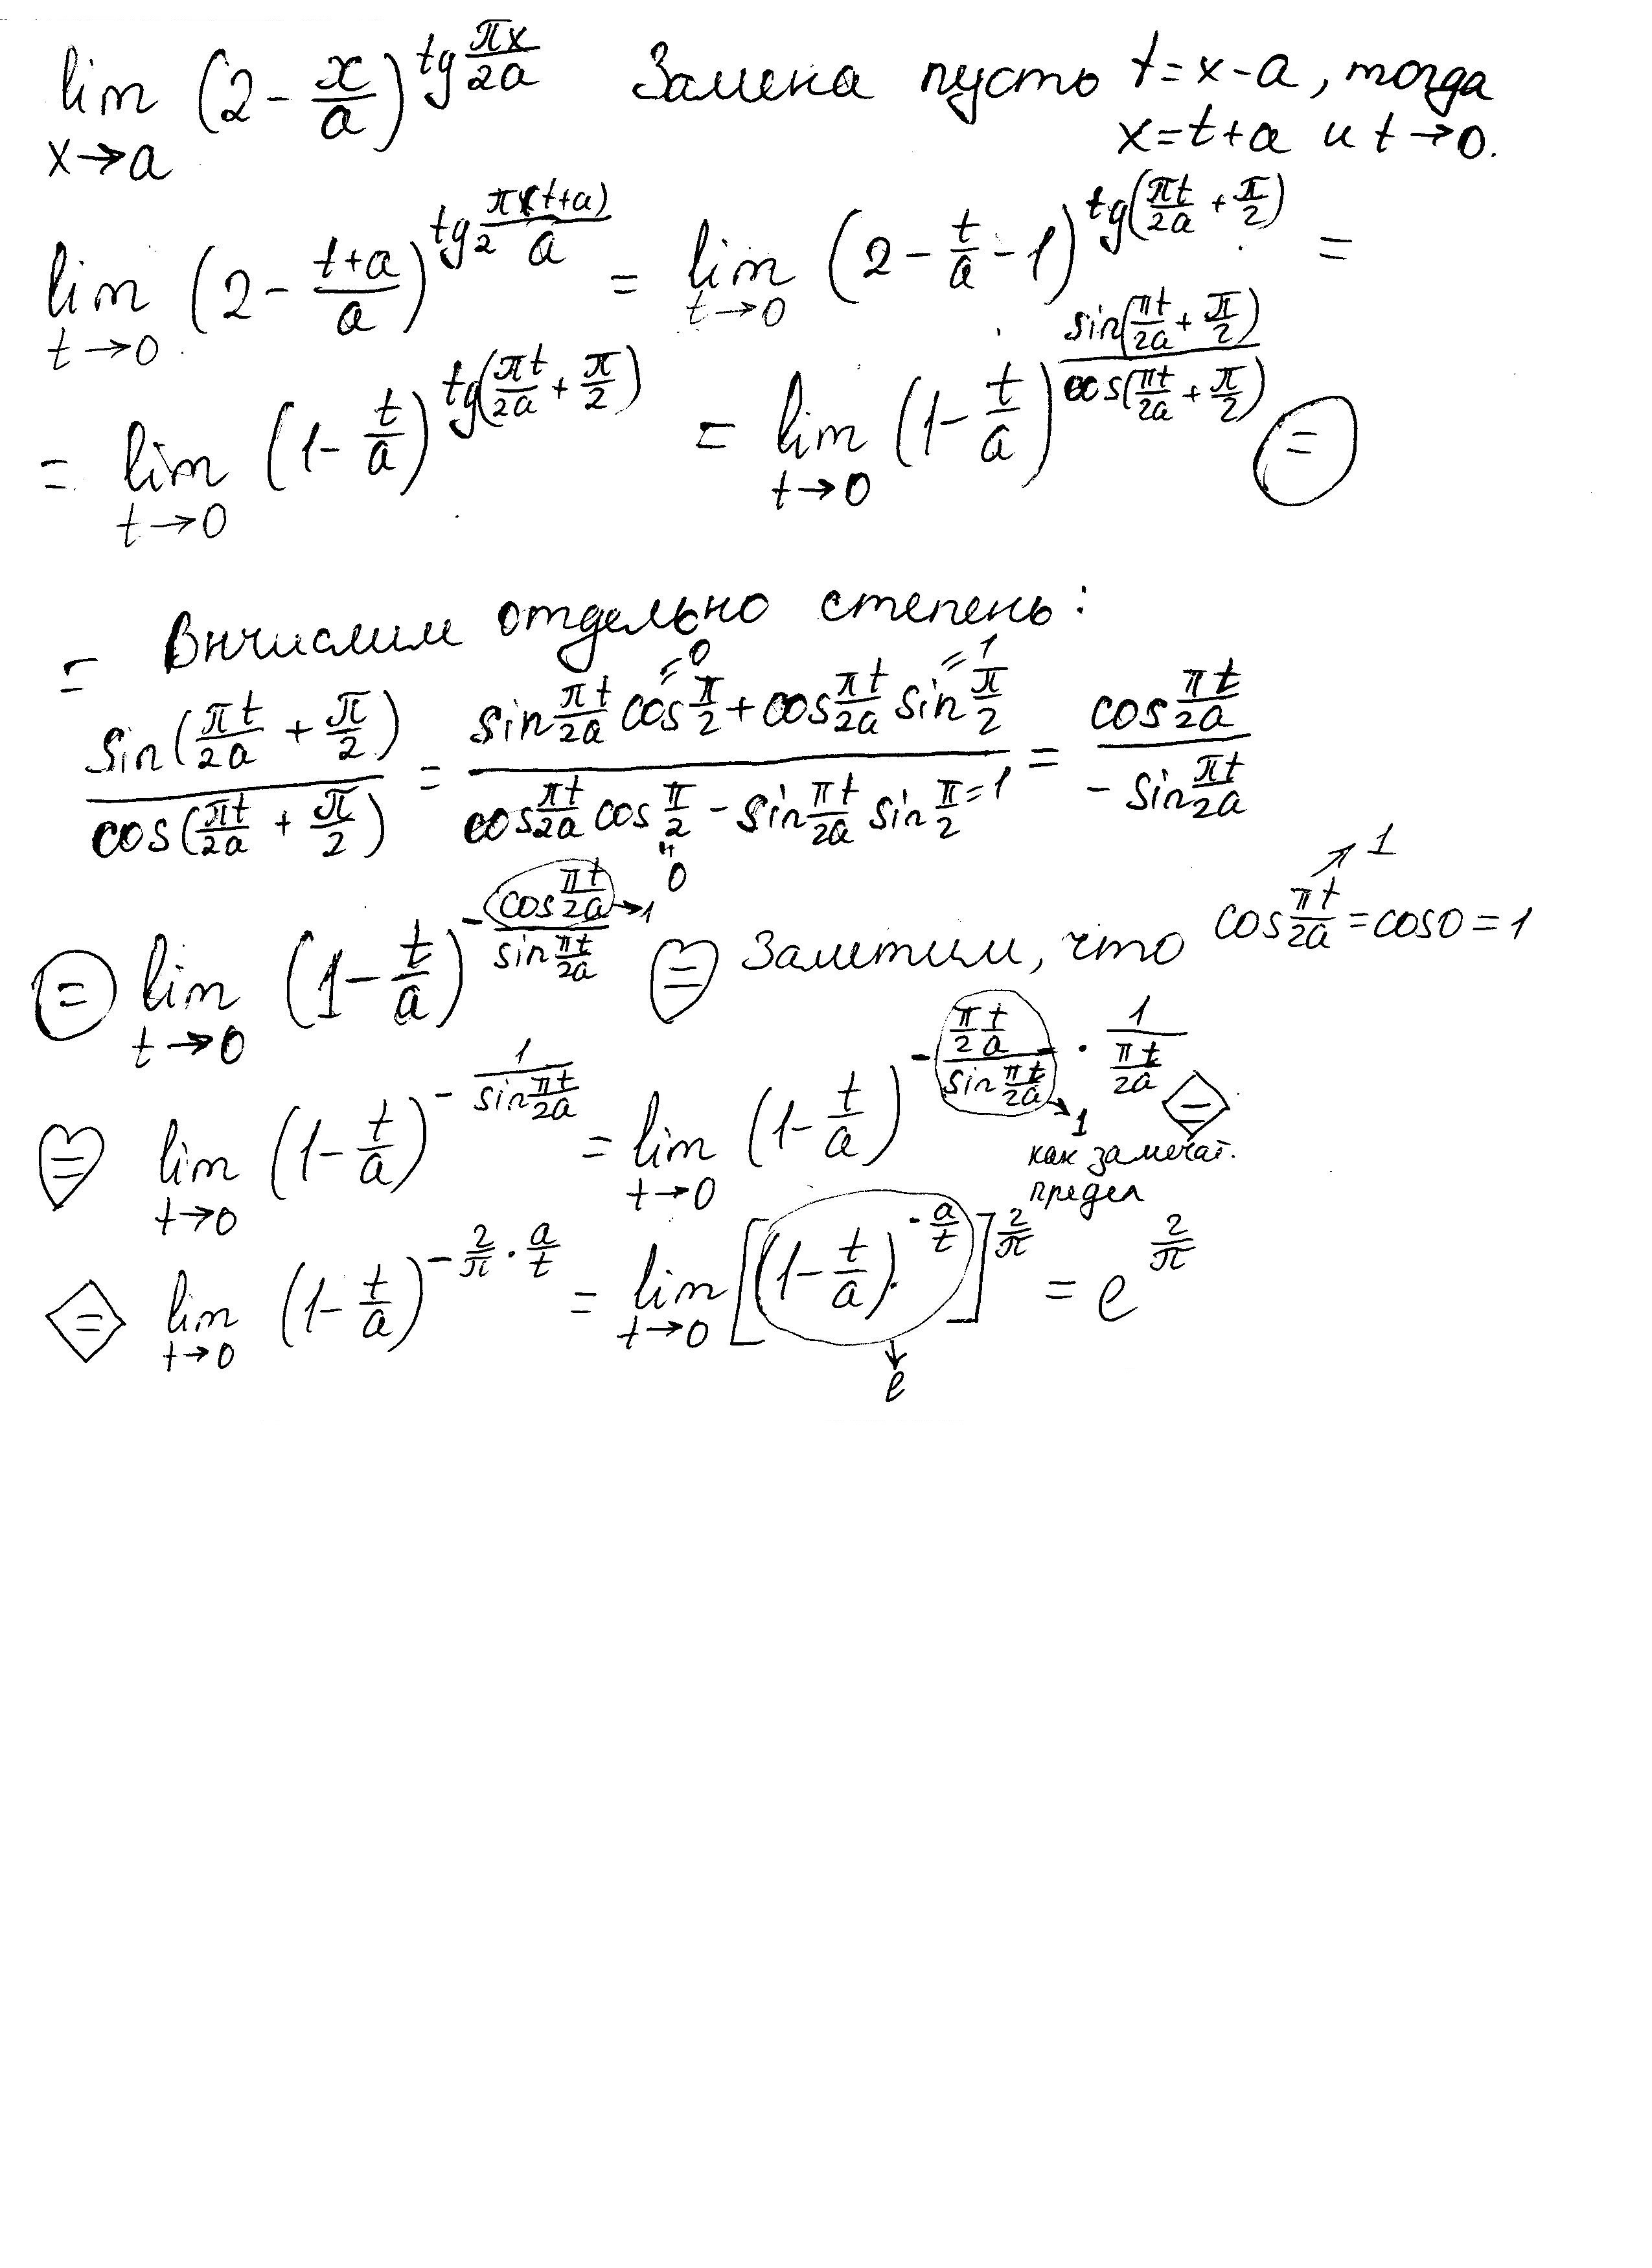 lim (2 - x/a)^(tg πx/2a) Замена пусть t = x - a, тогда
x→a x = t + a и t → 0.
lim (2 - (t+a)/a)^(tg π(t+a)/2a) = lim (2 - t/a - 1)^(tg(πt/2a + π/2)) =
t→0 t→0
= lim (1 - t/a)^(tg(πt/2a + π/2)) = lim (1 - t/a)^(sin(πt/2a + π/2)/cos(πt/2a + π/2)) =
t→0 t→0
= Вычислим отдельно степень:
=0 =1
sin(πt/2a + π/2)/cos(πt/2a + π/2) = (sin πt/2a cos π/2 + cos πt/2a sin π/2)/(cos πt/2a cos π/2 - sin πt/2a sin π/2 = 1) = cos πt/2a / - sin πt/2a
" 0
↗ 1
= lim (1 - t/a)^(- cos πt/2a → 1 / sin πt/2a) = Заметим, что cos πt/2a = cos 0 = 1
t→0
= lim (1 - t/a)^(- 1/sin πt/2a) = lim (1 - t/a)^(- (π/2 t/a)/(sin πt/2a) · 1/(πt/2a)) =
t→0 t→0 → 1
как замечат.
предел
= lim (1 - t/a)^(- 2/π · a/t) = lim [(1 - t/a)^(- a/t)]^(2/π) = e^(2/π)
t→0 t→0
↓
e